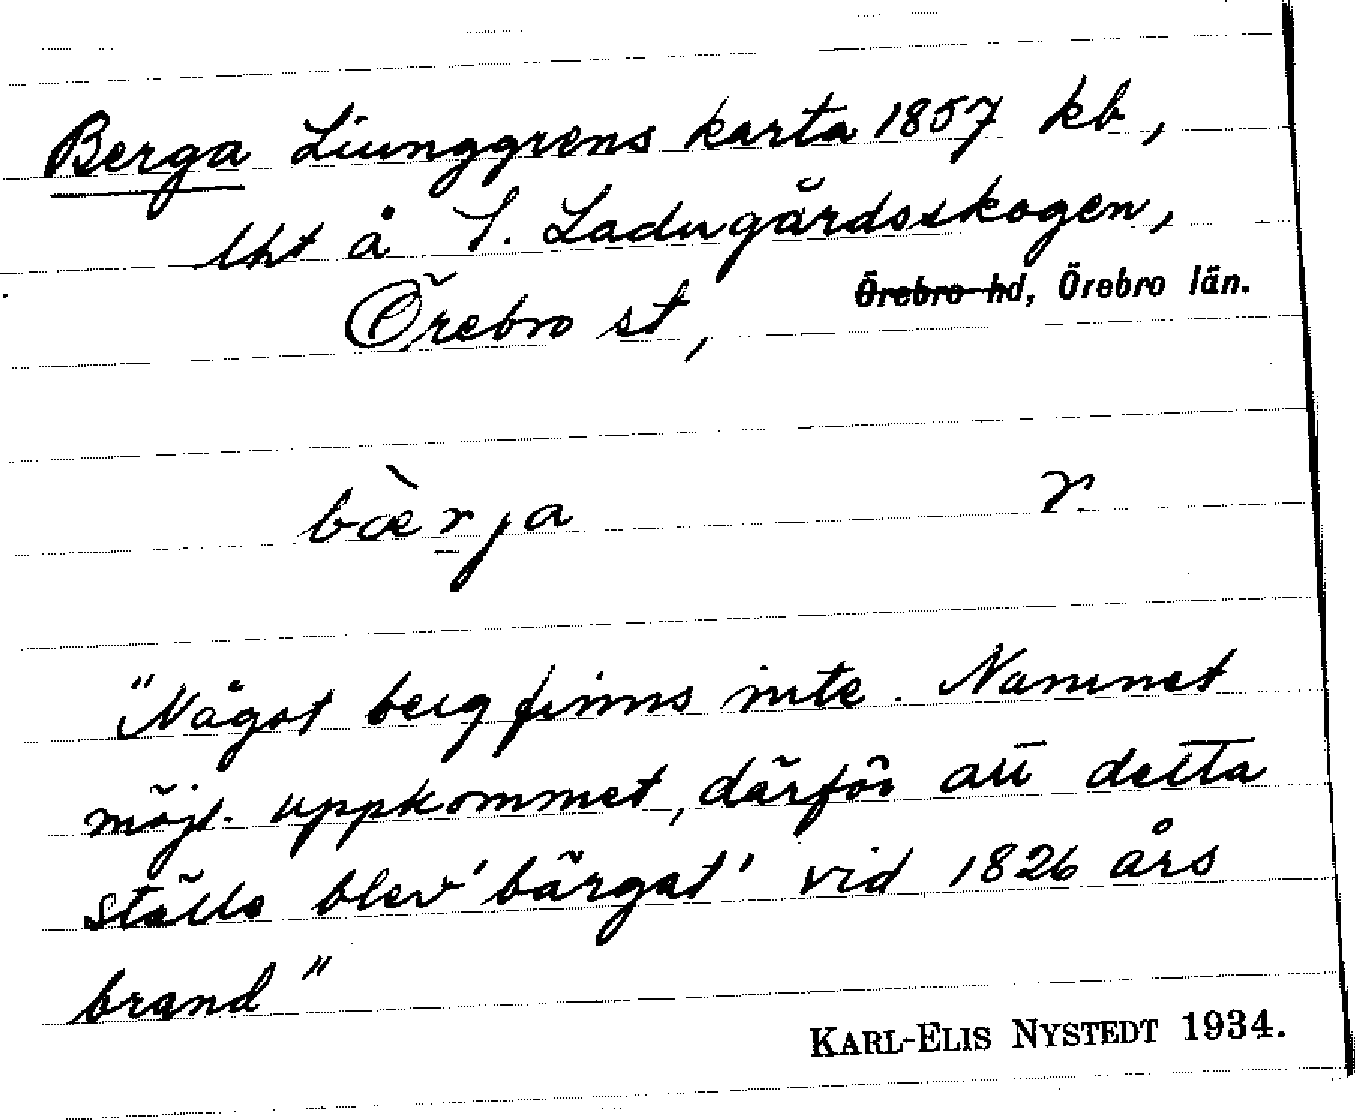 Berga Liunggrens karta 1857 kb,
lht å S. Ladugårdsskogen,
Örebro st, Örebro hd, Örebro län.
bæ̀rja r
"Något berg finns inte. Namnet
möjl. uppkommet, därför att detta
ställe blev 'bärgat' vid 1826 års
brand"
KARL-ELIS NYSTEDT 1934.